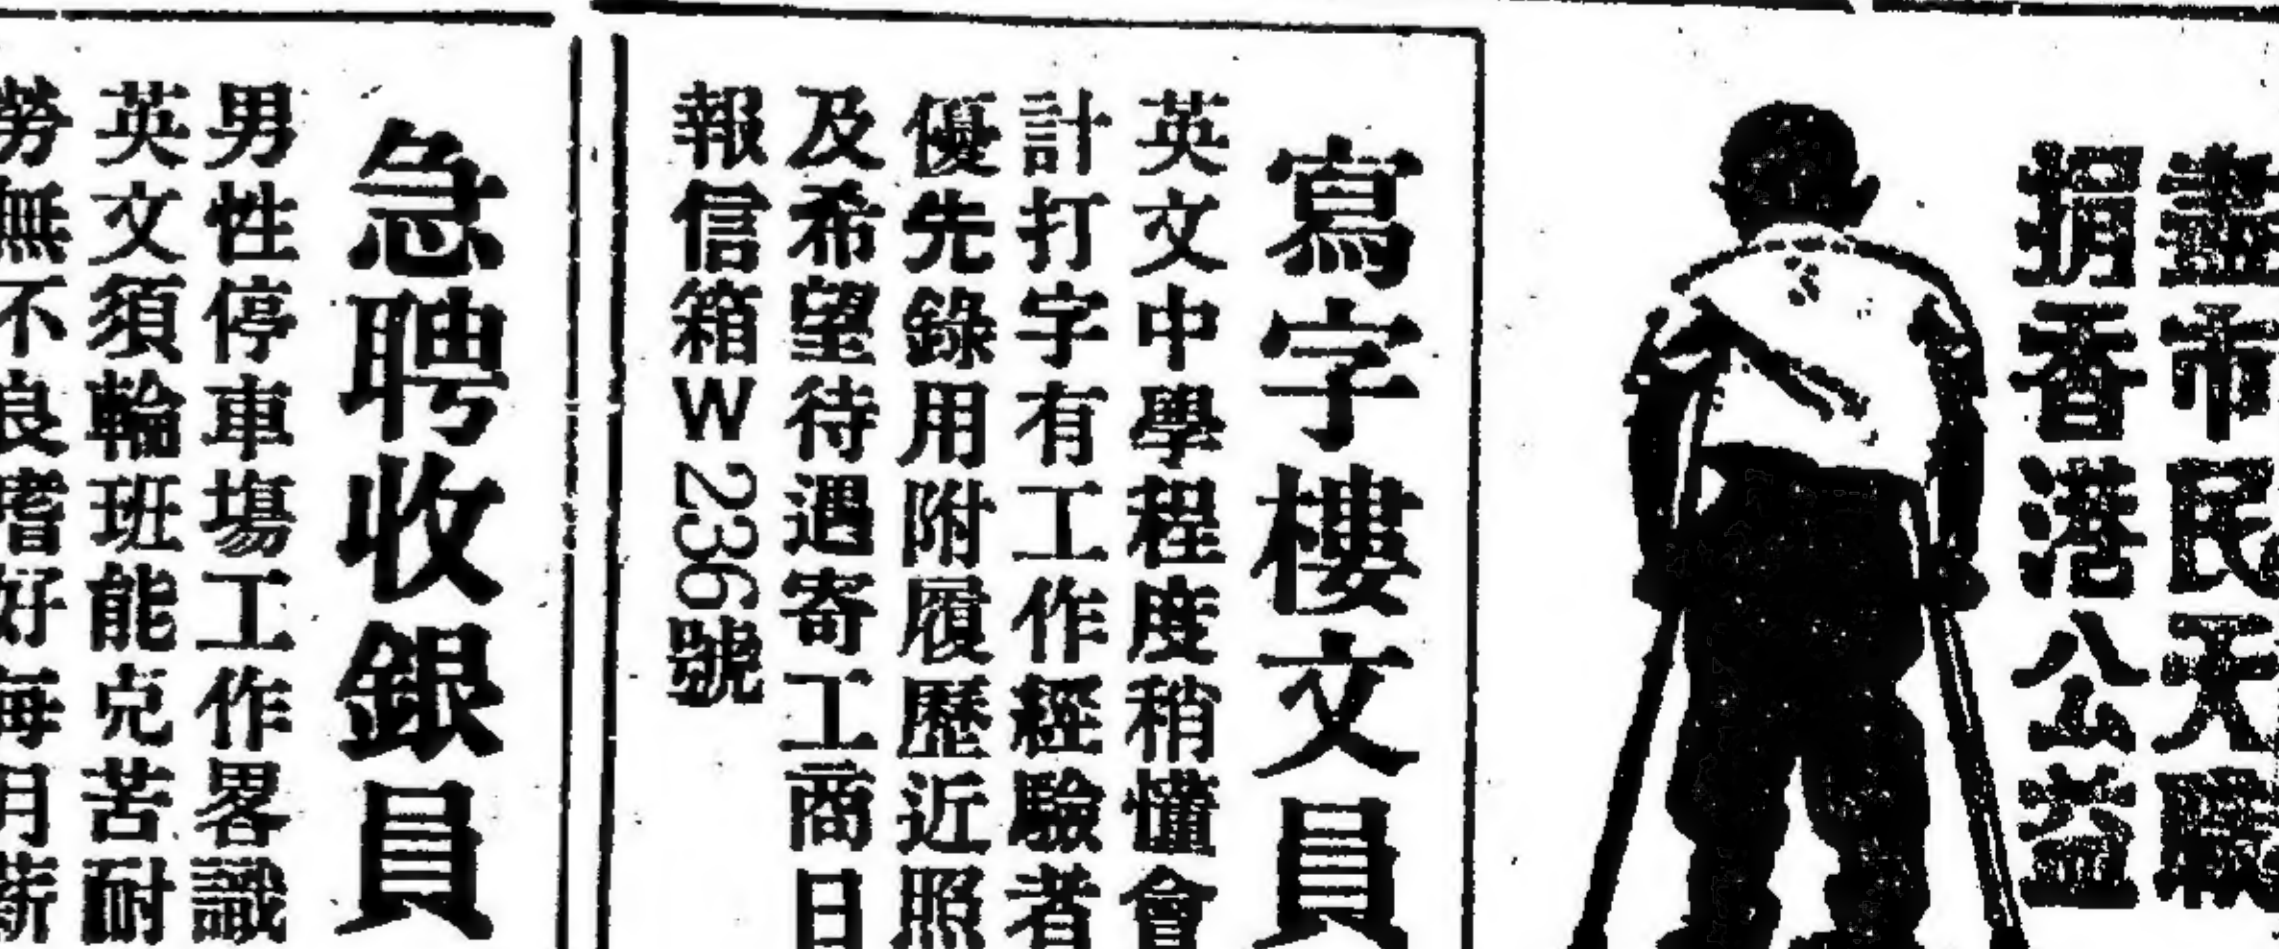 盡市民天職
捐香港公益
寫字樓文員
英文中學程度稍懂會
計打字有工作經驗者
優先錄用附履歷近照
及希望待遇寄工商日
報信箱W236號
急聘收銀員
男性停車塲工作畧識
英文須輪班能克苦耐
勞無不良嗜好每月薪